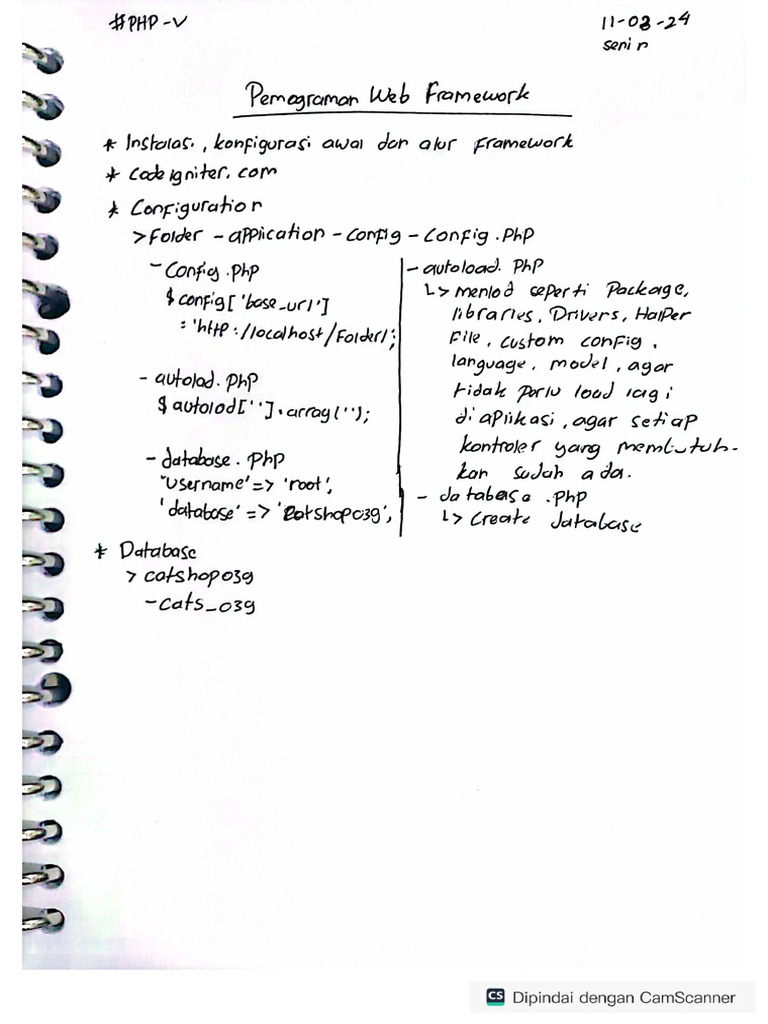 #PHP-V
11-03-24
senin
Pemograman Web Framework
* Instalasi, konfigurasi awal dan alur Framework
* codeigniter.com
* Configuration
> Folder - application - config - config.php
- Config.php
$config['base_url']
= 'http://localhost/Folder/;
- autolad.php
$autolod[''].array('');
- database.php
'username' => 'root',
'database' => 'catshop039',
- autoload.php
↳ menlod seperti Package,
libraries, Drivers, Halper
File, custom config,
language, model, agar
tidak perlu load lagi
di aplikasi, agar setiap
kontroler yang membutuh-
kan sudah ada.
- database.php
↳ Create database
* Database
> catshop039
- cats_039
CS Dipindai dengan CamScanner